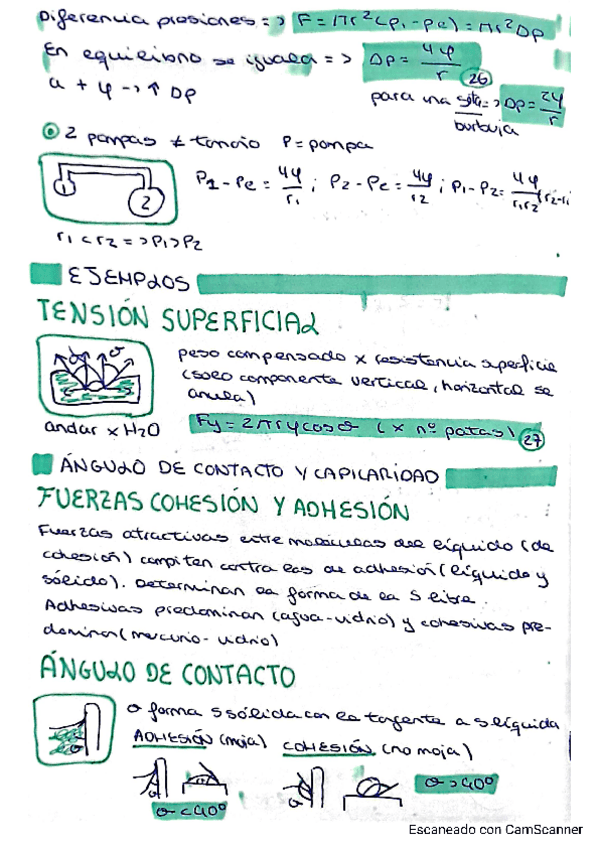 Diferencia presiones => F = πr²(pi - pe) = πr²Δp
En equilibrio se iguala => Δp = 4γ/r (26)
a + γ -> ↑ Δp
para una sola burbuja => Δp = 2γ/r
2 pompas ≠ tamaño P = pompa
1 2
P1 - Pe = 4γ/r1 ; P2 - Pe = 4γ/r2 ; P1 - P2 = 4γ/r1r2 (r2-r1
r1 < r2 => P1 > P2
EJEMPLOS
TENSIÓN SUPERFICIAL
peso compensado x resistencia superficie
(solo componente vertical, horizontal se
anula)
andar x H2O
Fy = 2πrγcosθ (x nº patas) (27)
ÁNGULO DE CONTACTO Y CAPILARIDAD
FUERZAS COHESIÓN Y ADHESIÓN
Fuerzas atractivas entre moléculas del líquido (de
cohesión) compiten contra las de adhesión (líquido y
sólido). Determinan la forma de la S libre.
Adhesivas predominan (agua-vidrio) y cohesivas pre-
dominan (mercurio-vidrio)
ÁNGULO DE CONTACTO
θ forma S sólida con la tangente a S líquida
ADHESIÓN (moja) COHESIÓN (no moja)
θ < 90º
θ > 90º
Escaneado con CamScanner